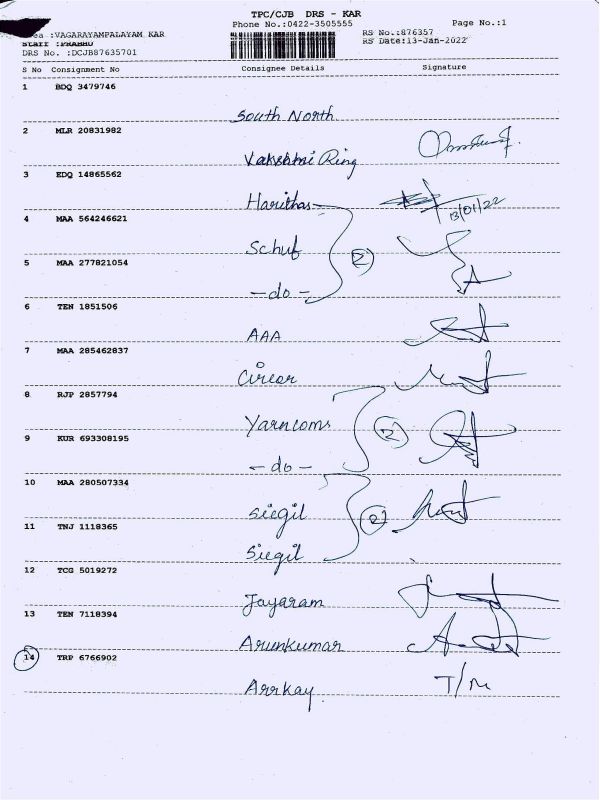 TPC/CJB DRS - KAR
Phone No.:0422-3505555 Page No.:1
:VAGARAYAMPALAYAM KAR RS No.:876357
Staff :PRABHU RS Date:13-Jan-2022
DRS No. :DCJB87635701
S No Consignment No Consignee Details Signature
1 BDQ 3479746
South North
2 MLR 20831982
Vakshmi Ring
3 EDQ 14865562
Harithas 13/01/22
4 MAA 564246621
Schuf 2
5 MAA 277821054
-do-
6 TEN 1851506
AAA
7 MAA 285462837
Circor
8 RJP 2857794
Yarncoms 2
9 KUR 693308195
-do-
10 MAA 280507334
Siegil 2
11 TNJ 1118365
Siegil
12 TCG 5019272
Jayaram
13 TEN 7118394
Arunkumar
14 TRP 6766902
Arrkay T/M